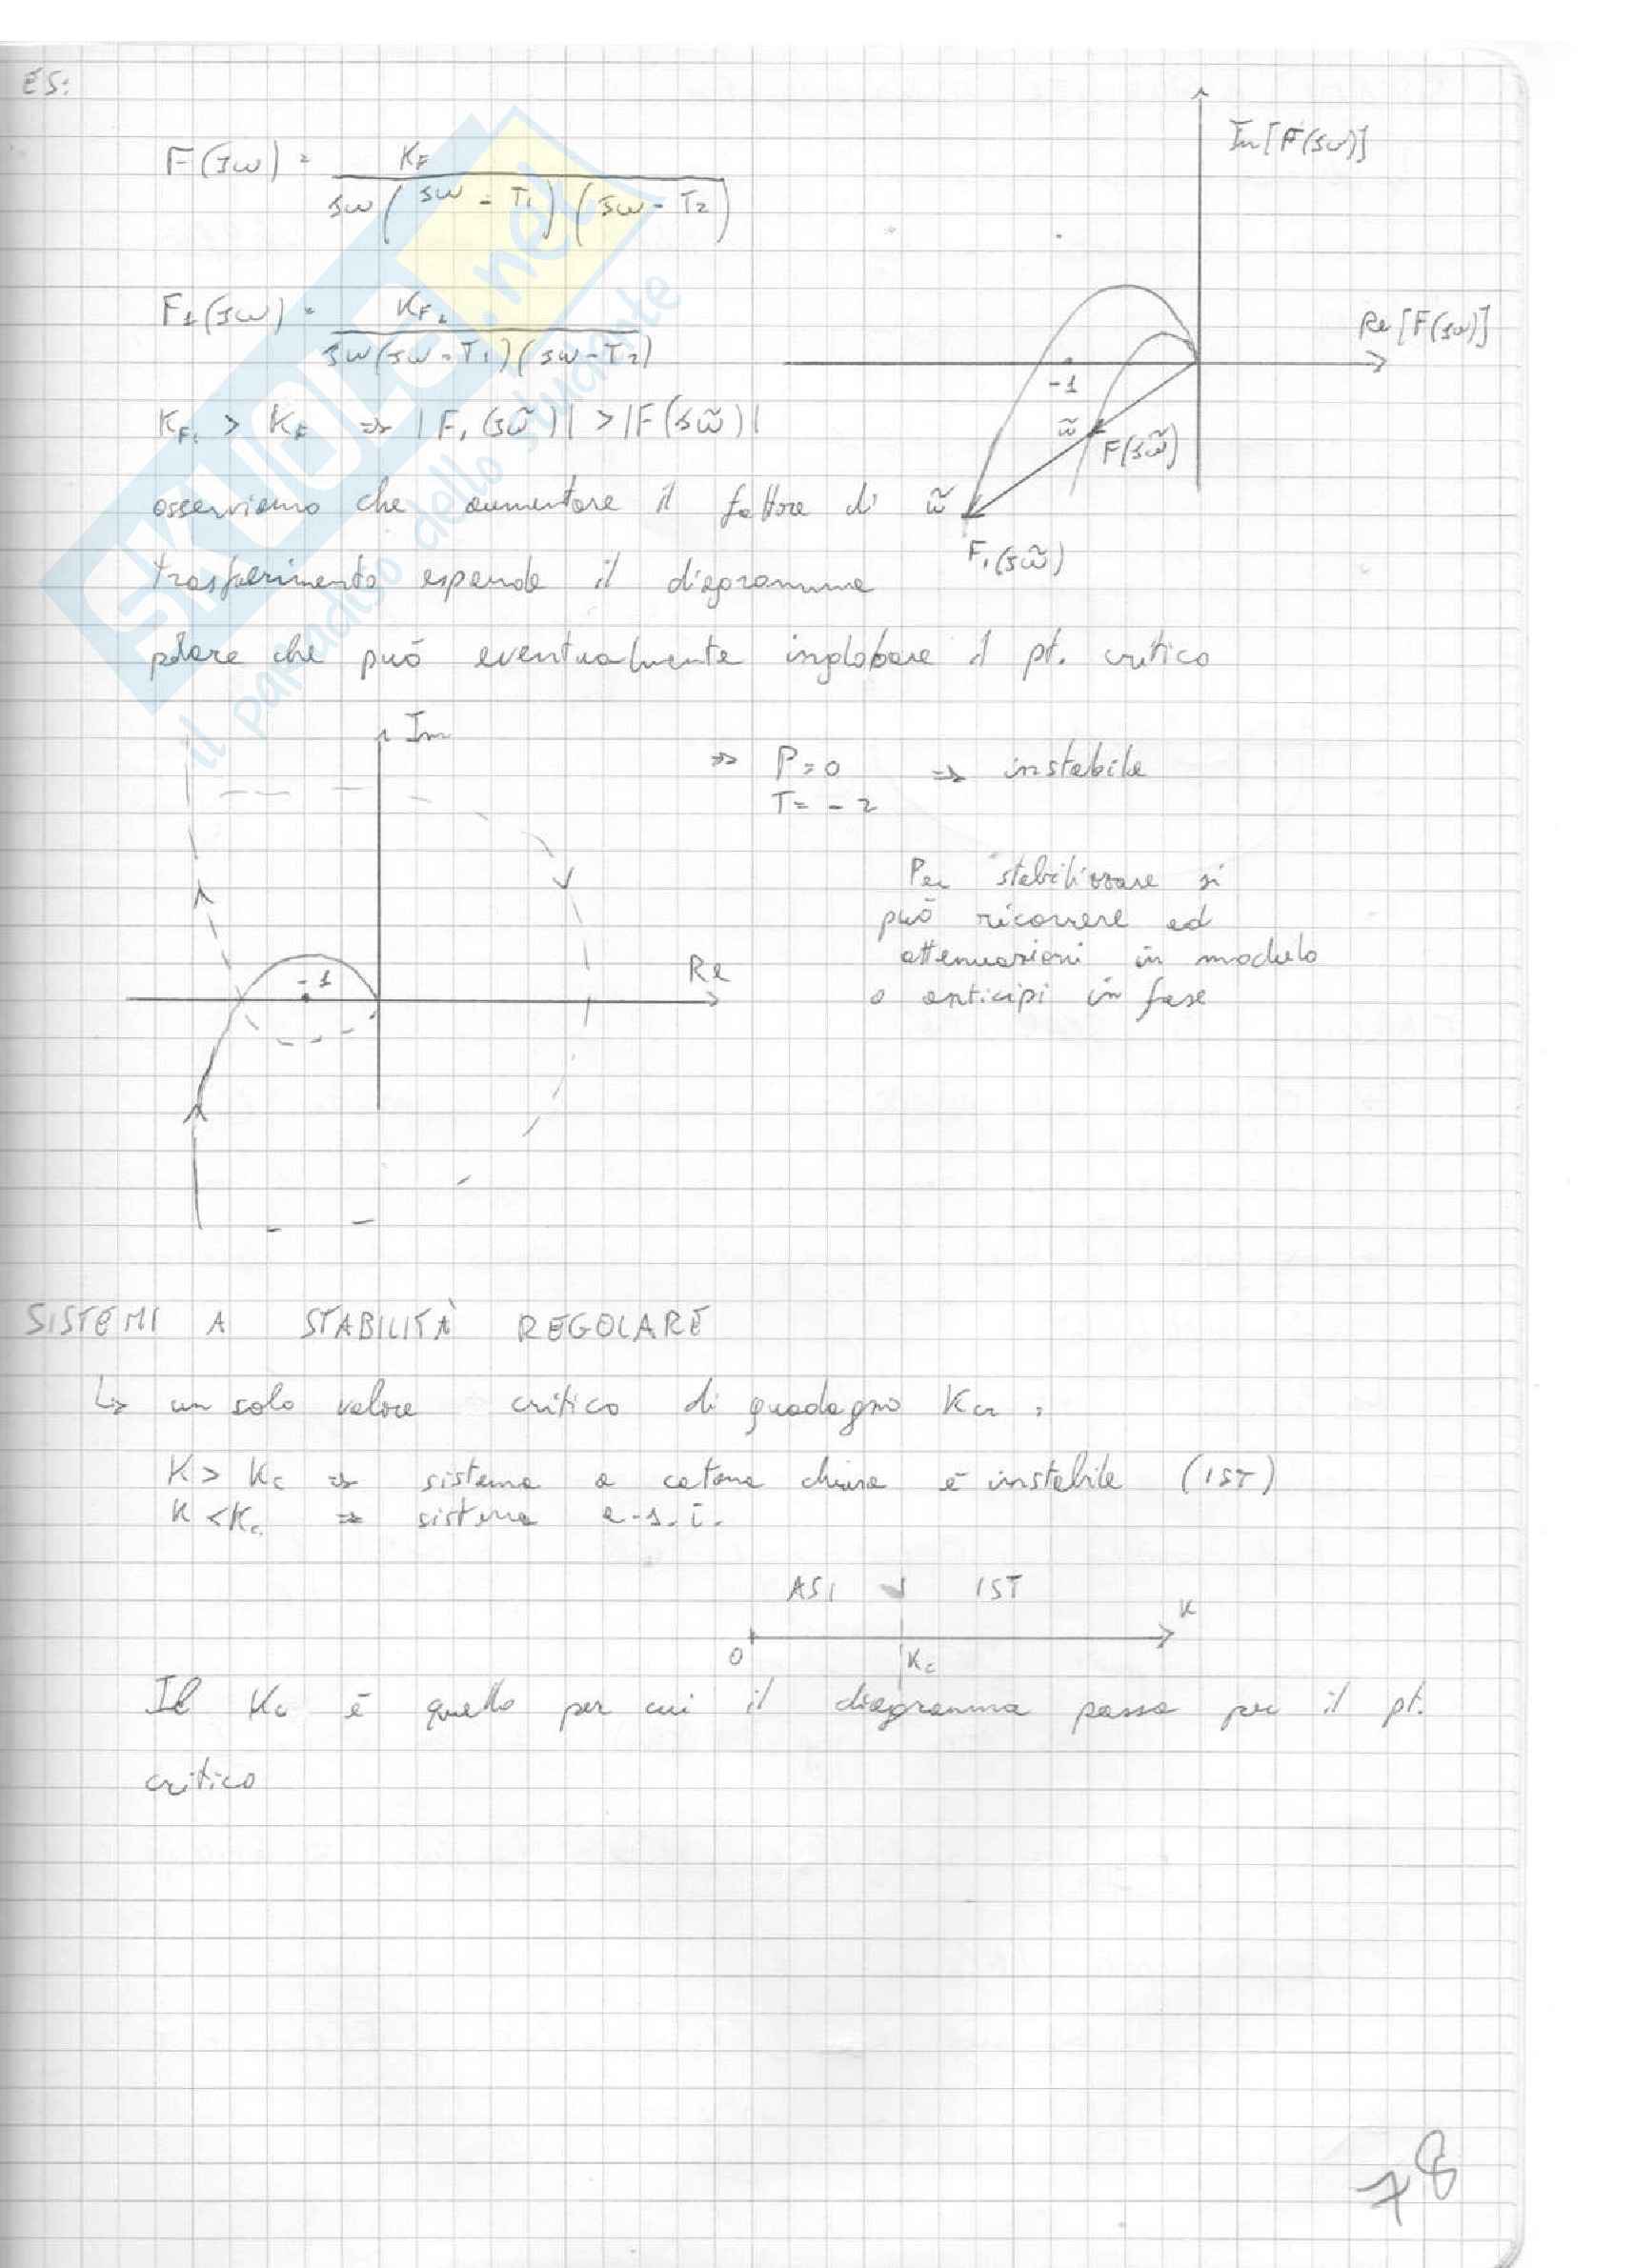 ES:
F(jω) = K_F / jω(jω - T1)(jω - T2)
Im[F(jω)]
F1(jω) = K_F1 / jω(jω - T1)(jω - T2)
Re[F(jω)]
-1
K_F1 > K_F ⇒ |F1(jω̃)| > |F(jω̃)|
ω̃
F(jω̃)
osserviamo che aumentare il fattore di
ω̃
F1(jω̃)
trasferimento espande il diagramma
polare che può eventualmente inglobare il pt. critico
Im
⇒ P=0 ⇒ instabile
T= -2
Per stabilizzare si
può ricorrere ad
attenuazioni in modulo
o anticipi in fase
-1
Re
SISTEMI A STABILITÀ REGOLARE
↳ un solo valore critico di guadagno Kcr,
K > Kc ⇒ sistema a catena chiusa è instabile (IST)
K < Kc ⇒ sistema a.s.i.
ASI ↓ IST
K
0
Kc
Il Kc è quello per cui il diagramma passa per il pt.
critico
78
SKUOLA.net
il paradiso dello studente